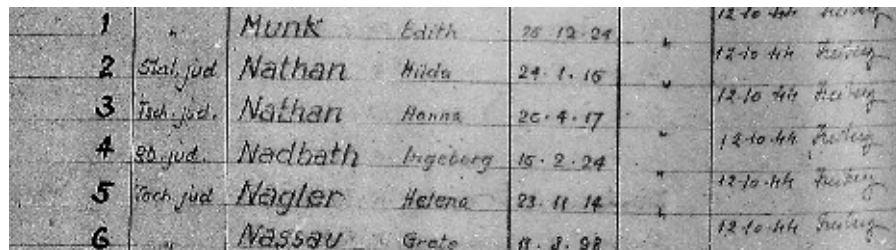 1 " Munk Edith 26 12 24 " 12·10·44 Freiberg
2 Stal. jud Nathan Hilda 24·1·16 " 12·10·44 Freiberg
3 Tsch. jud. Nathan Hanna 20·4·17 " 12·10·44 Freiberg
4 jud. Nadbath Ingeborg 15·2·24 " 12·10·44 Freiberg
5 Tsch. jud Nagler Helena 23·11 14 " 12·10·44 Freiberg
6 " Nassau Grete 11·3·98 12·10·44 Freiberg